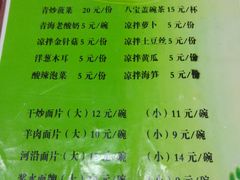 青炒莜菜 20元/份 八宝盖碗茶15元/杯
青海老酸奶 5元/碗 凉拌萝卜 5元/份
凉拌金针菇 5元/份 凉拌土豆丝 5元/份
洋葱木耳 5元/份 凉拌黄瓜 5元/份
酸辣泡菜 5元/份 凉拌海笋 5元/份
干炒面片(大)12元/碗 (小)11元/碗
羊肉面片(大)10元/碗 (小)9元/碗
河沿面片(大) (小)14元/碗
(小)9元/碗